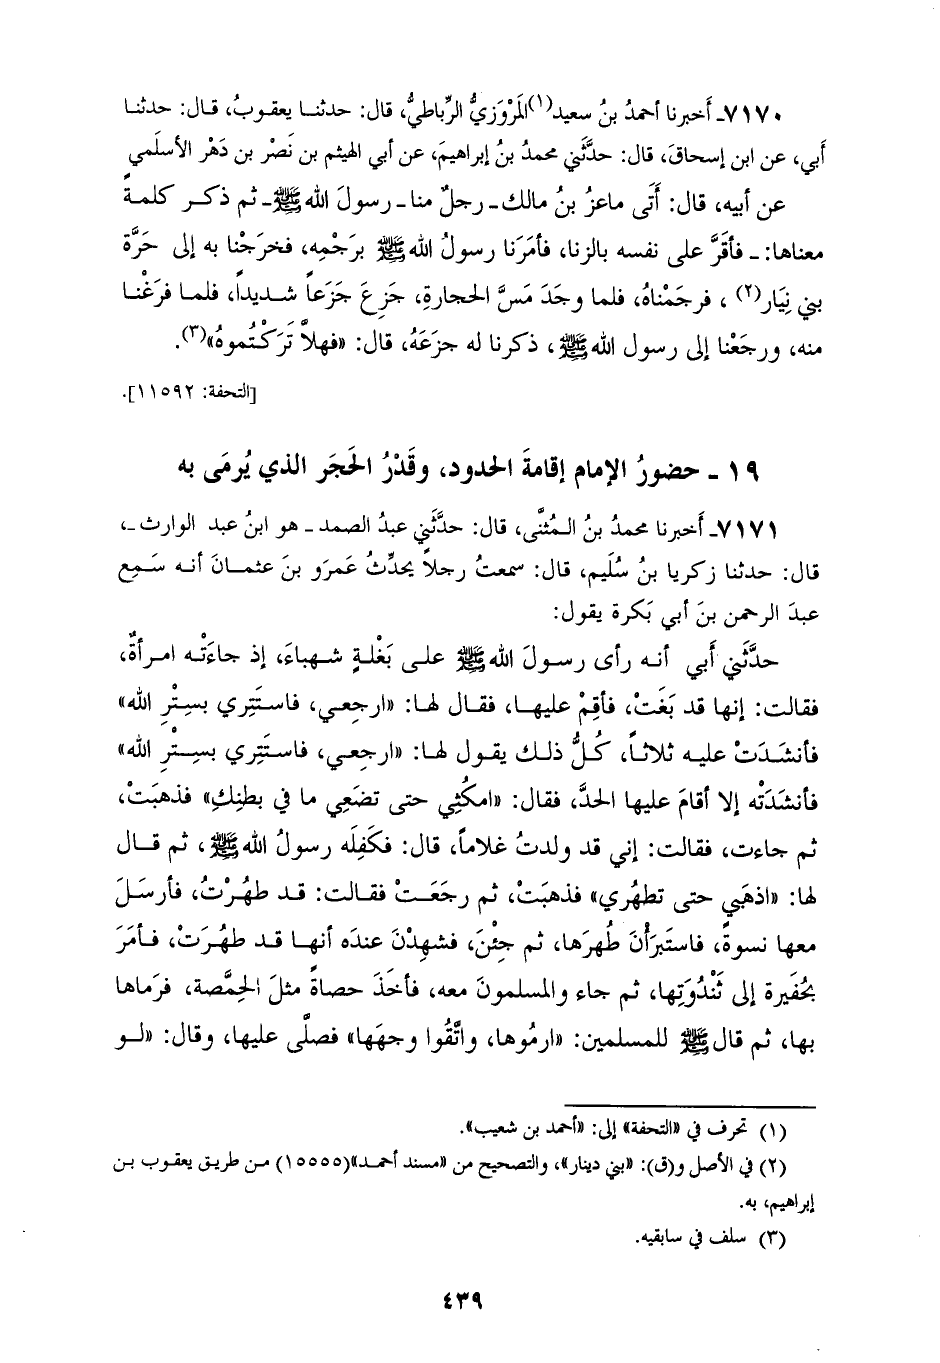 ٧١٧٠ـ أَخبرنا أحمدُ بنُ سعيد(١) المَرْوَزيُّ الرِّباطيُّ، قال: حدثنا يعقوبُ، قال: حدثنا
أَبي، عن ابن إسحاقَ، قال: حدَّثَني محمدُ بنُ إبراهيمَ، عن أبي الهيثم بن نَصْر بن دَهْر الأسلَمي
عن أبيه، قال: أَتَى ماعزُ بنُ مالك ـ رجلٌ منا ـ رسولَ الله ﷺ ـ ثم ذكر كلمةً
معناها: ـ فأقَرَّ على نفسه بالزنا، فأمَرَنا رسولُ الله ﷺ برَجْمِه، فخرَجْنا به إلى حَرَّة
بني نِيَار(٢)، فرجَمْناهُ، فلما وجَدَ مَسَّ الحجارةِ، جَزِعَ جَزَعاً شديداً، فلما فرَغْنا
منه، ورجَعْنا إلى رسول الله ﷺ، ذكرنا له جزَعَهُ، قال: «فهلاَّ تَرَكْتُموهُ»(٣).
[التحفة: ١١٥٩٢].
١٩ ـ حضورُ الإمام إقامةَ الحدود، وقَدْرُ الحَجَر الذي يُرمَى به
٧١٧١ـ أَخبرنا محمدُ بنُ المُثنَّى، قال: حدَّثَني عبدُ الصمد ـ هو ابنُ عبد الوارث ـ،
قال: حدثنا زكريا بنُ سُلَيم، قال: سمعتُ رجلاً يحدِّثُ عَمرَو بنَ عثمانَ أنه سَمِع
عبدَ الرحمن بنَ أبي بَكرة يقول:
حدَّثَني أَبي أنه رأى رسولَ الله ﷺ على بَغْلةٍ شهباءَ، إذ جاءَتْه امرأةٌ،
فقالت: إنها قد بَغَتْ، فأقِمْ عليها، فقال لها: «ارجعي، فاستَتِري بسِتْرِ الله»
فأنشَدَتْ عليه ثلاثاً، كُلُّ ذلك يقول لها: «ارجعي، فاستَتِري بسِتْرِ الله»
فأنشَدَتْه إلا أقامَ عليها الحدَّ، فقال: «امكُثِي حتى تضَعِي ما في بطنِكِ» فذهبَتْ،
ثم جاءت، فقالت: إني قد ولدتُ غلاماً، قال: فكَفِلَه رسولُ الله ﷺ، ثم قال
لها: «اذهَبي حتى تطهُري» فذهبَتْ، ثم رجَعَتْ فقالت: قد طهُرْتُ، فأرسَلَ
معها نسوةً، فاستَبرَأْنَ طُهرَها، ثم جِئْنَ، فشهِدْنَ عندَه أنها قد طهُرَتْ، فأمَرَ
بحُفَيرة إلى ثَنْدُوَتِها، ثم جاء والمسلمونَ معه، فأخَذَ حصاةً مثلَ الحِمَّصة، فرَماها
بها، ثم قال ﷺ للمسلمين: «ارمُوها، واتَّقُوا وجهَها» فصلَّى عليها، وقال: «لو
(١) تحرف في «التحفة» إلى: «أحمد بن شعيب».
(٢) في الأصل و(ق): «بني دينار»، والتصحيح من «مسند أحمد»(١٥٥٥٥) من طريق يعقوب بن
إبراهيم، به.
(٣) سلف في سابقيه.
٤٣٩